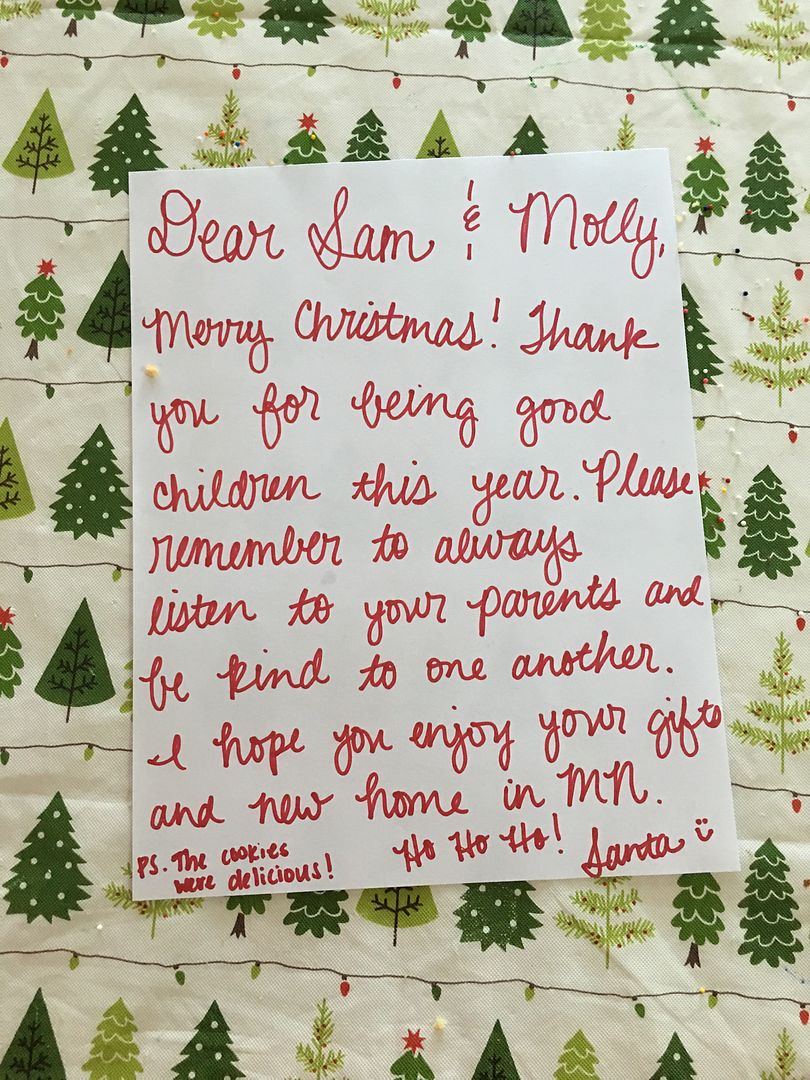 Dear Sam & Molly,
Merry Christmas! Thank
you for being good
children this year. Please
remember to always
listen to your parents and
be kind to one another.
I hope you enjoy your gifts
and new home in MN.
Ho Ho Ho! Santa :)
PS. The cookies
were delicious!